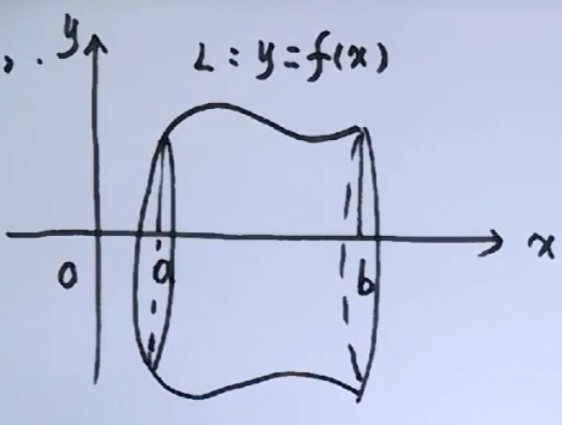 , . y
L : y = f(x)
x
0
a
b